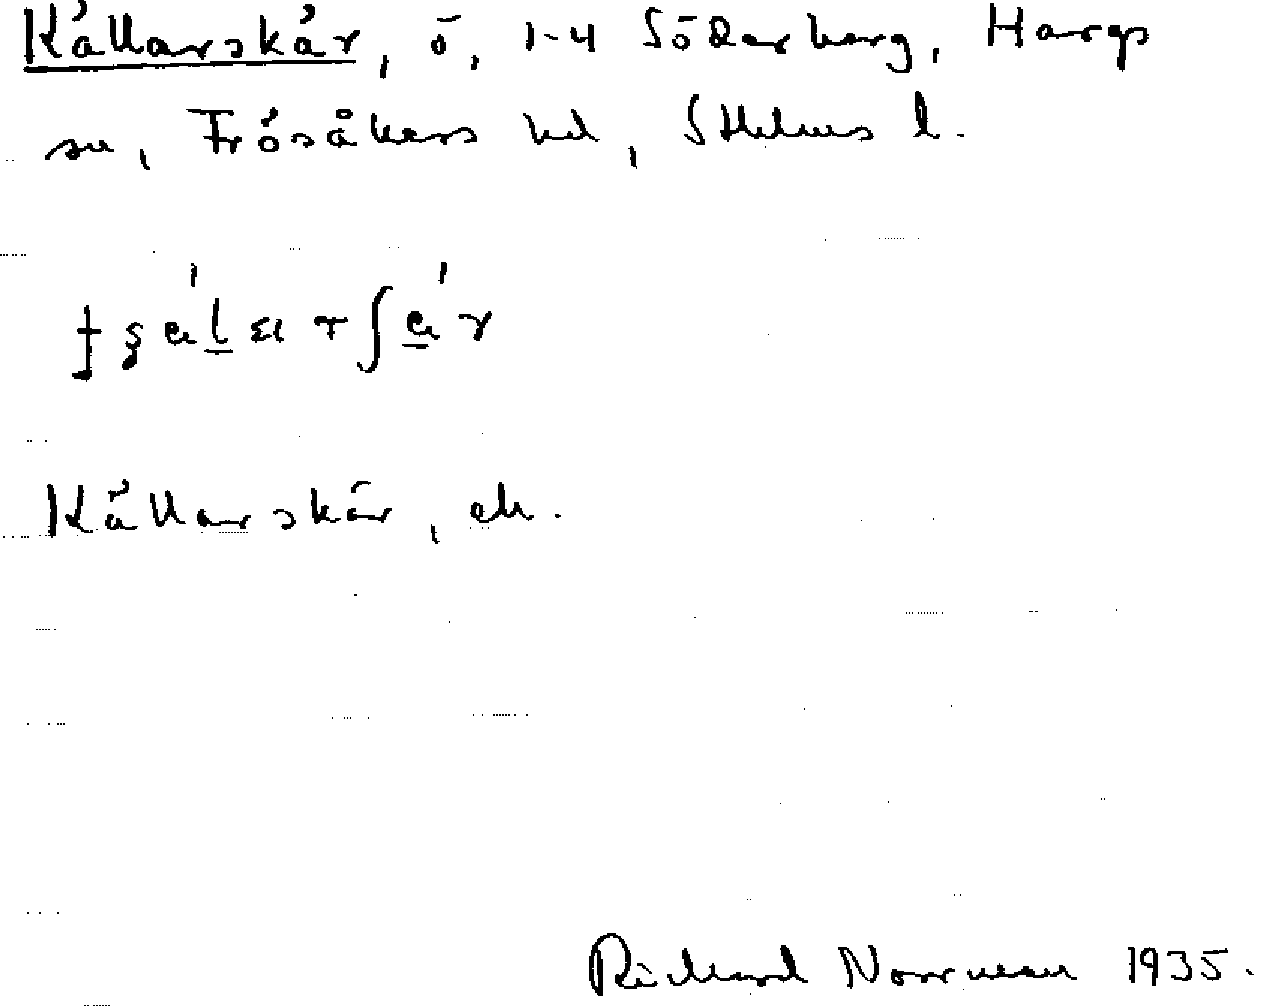 Källarskär, ö, 1-4 Söderberg, Hargs
sn, Frösåkers hd, Sthlms l.
Källarskär, ek.
Richard Norrman 1935.